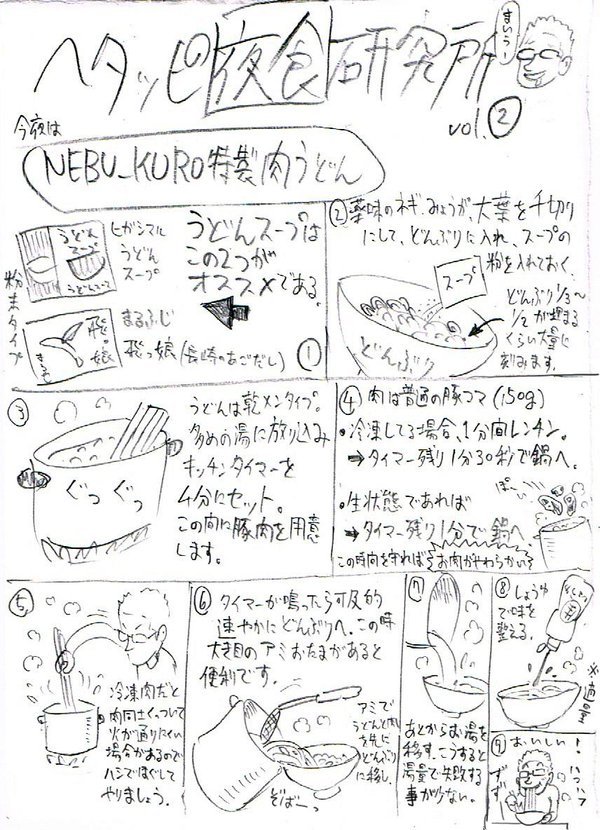 すいうー!
ヘタッピの夜食研究所
vol.②
今夜は
NEBU_KURO特製肉うどん
うどん
スープ
うどんスープ
ヒガシマル
うどん
スープ
粉末タイプ
飛っ娘
まるふじ
飛っ娘(長崎のあごだし)
うどんスープは
この2つが
オススメである。
①
②薬味のネギ、みょうが、大葉を千切り
にして、どんぶりに入れ、スープの
粉を入れておく。
スープ
どんぶり
どんぶり1/3〜
1/2が埋まる
くらい大量に
刻みます。
③
ぐつぐつ
うどんは乾メンタイプ。
多めの湯に放り込み
キッチンタイマーを
4分にセット。
この間に豚肉を用意
します。
④肉は普通の豚コマ(150g)
・冷凍してる場合、1分間レンチン。
➡タイマー残り1分30秒で鍋へ。
・生状態であれば
➡タイマー残り1分で鍋へ
ぽーい
この時間を守ればお肉がやわらかい
⑤
冷凍肉だと
肉同士くっついて
火が通りにくい
場合があるので
ハシでほぐして
やりましょう。
⑥タイマーが鳴ったら可及的
速やかにどんぶりへ。この時
大き目のアミおたまがあると
便利です。
アミで
うどんと肉
を先に
どんぶり
に移し、
ざばーっ
⑦
あとからお湯を
移す。こうすると
湯量で失敗する
事が少ない。
⑧しょうゆ
で味を
整える。
⑨おいしい!
ハフハフ
ずず